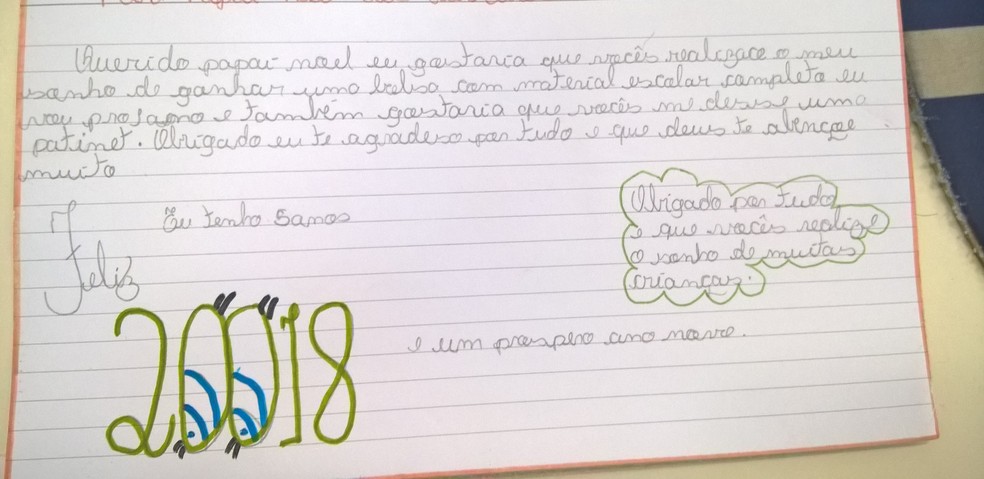 Querido papai noel eu gostaria que vocês realizace o meu
sonho de ganhar uma bolsa com material escolar completo eu
vou pro 5 ano e também gostaria que vocês me desse uma
patinet. Obrigado eu te agradeso por tudo e que deus te abençoe
muito
Eu tenho 9 anos
Obrigado por tudo
e que vocês realize
o sonho de muitas
crianças.
Feliz
20018
e um prospero ano novo.